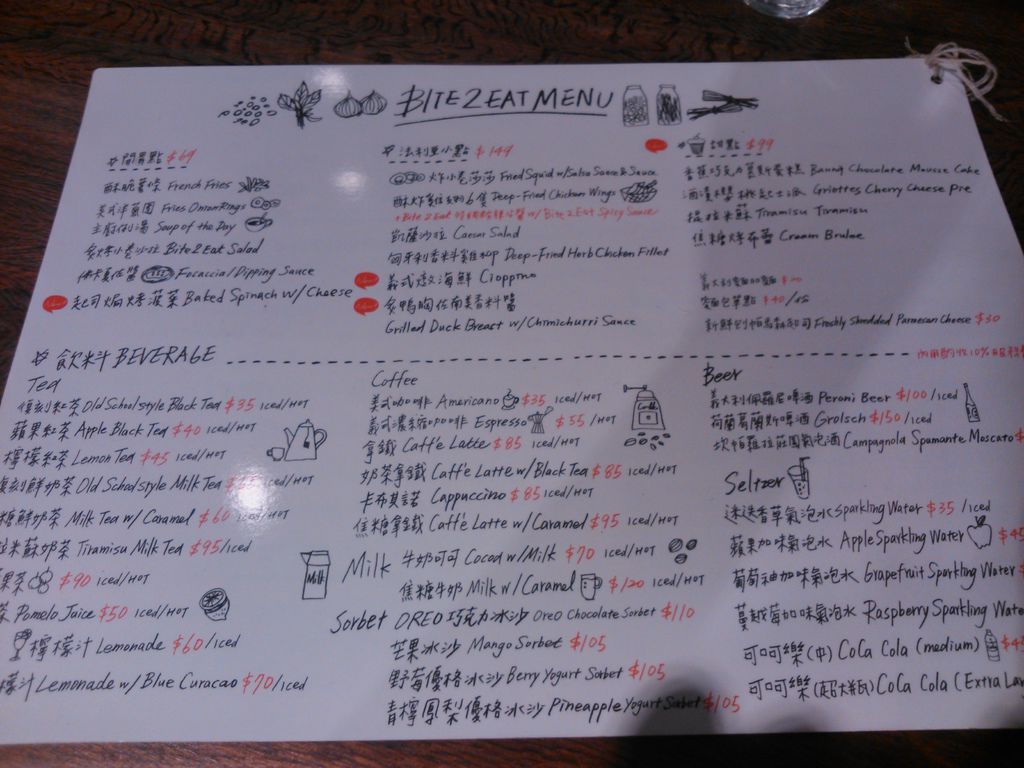 BITE 2 EAT MENU
簡易點 $69
酥脆薯條 French Fries
美式洋蔥圈 Fries Onion Rings
主廚例湯 Soup of the Day
炙烤小卷沙拉 Bite 2 Eat Salad
佛卡夏佐醬 Focaccia/Dipping Sauce
起司焗烤菠菜 Baked Spinach w/ Cheese
法利亞小點 $149
炸小卷莎莎 Fried Squid w/Salsa Sauce & Sauce
酥炸薯 6隻 Deep-Fried Chicken Wings
+Bite 2 Eat w/ Bite 2 Eat Spicy Sauce
凱薩沙拉 Caesar Salad
匈牙利香料雞柳 Deep-Fried Herb Chicken Fillet
義式燉海鮮 Cioppino
炙鴨胸佐南美香料醬
Grilled Duck Breast w/ Chimichurri Sauce
甜點 $99
香蕉巧克力慕斯蛋糕 Banana Chocolate Mousse Cake
酒漬櫻桃起士派 Griottes Cherry Cheese Pie
提拉米蘇 Tiramisu Tiramisu
焦糖烤布蕾 Cream Brulee
義大利麵加麵 $20
麵包單點 $40
新鮮刨帕馬森起司 Freshly Shredded Parmesan Cheese $30
飲料 BEVERAGE
內用酌收10%服務
Tea
復刻紅茶 Old School style Black Tea $35 iced/HOT
蘋果紅茶 Apple Black Tea $40 iced/HOT
檸檬紅茶 Lemon Tea $45 iced/HOT
復刻鮮奶茶 Old School style Milk Tea iced/HOT
糖鮮奶茶 Milk Tea w/ Caramel $60 iced/HOT
拉米蘇奶茶 Tiramisu Milk Tea $95/iced
果茶 $90 iced/HOT
茶 Pomelo Juice $50 iced/HOT
檸檬汁 Lemonade $60/Iced
檬汁 Lemonade w/ Blue Curacao $70/iced
Coffee
美式咖啡 Americano $35 iced/HOT
義式濃縮咖啡 Espresso $55/HOT
拿鐵 Caffe Latte $85 iced/HOT
奶茶拿鐵 Caffe Latte w/ Black Tea $85 iced/HOT
卡布其諾 Cappuccino $85 iced/HOT
焦糖拿鐵 Caffe Latte w/ Caramel $95 iced/HOT
Milk 牛奶可可 Cocoa w/Milk $70 iced/HOT
焦糖牛奶 Milk w/ Caramel $120 iced/HOT
Milk
Sorbet OREO巧克力冰沙 Oreo Chocolate Sorbet $110
芒果冰沙 Mango Sorbet $105
野莓優格冰沙 Berry Yogurt Sorbet $105
青檸鳳梨優格冰沙 Pineapple Yogurt Sorbet $105
Beer
義大利佩羅尼啤酒 Peroni Beer $100/iced
荷蘭葛蘭斯啤酒 Grolsch $150/iced
坎帕羅拉莊園氣泡酒 Campagnola Spumante Moscato $
Seltzer
迷迭香草氣泡水 Sparkling Water $35/iced
蘋果加味氣泡水 Apple Sparkling Water $45
葡萄柚加味氣泡水 Grapefruit Sparkling Water $
蔓越莓加味氣泡水 Raspberry Sparkling Water
可口可樂(中) CoCa Cola (medium) $45
可口可樂(超大瓶) CoCa Cola (Extra Lar